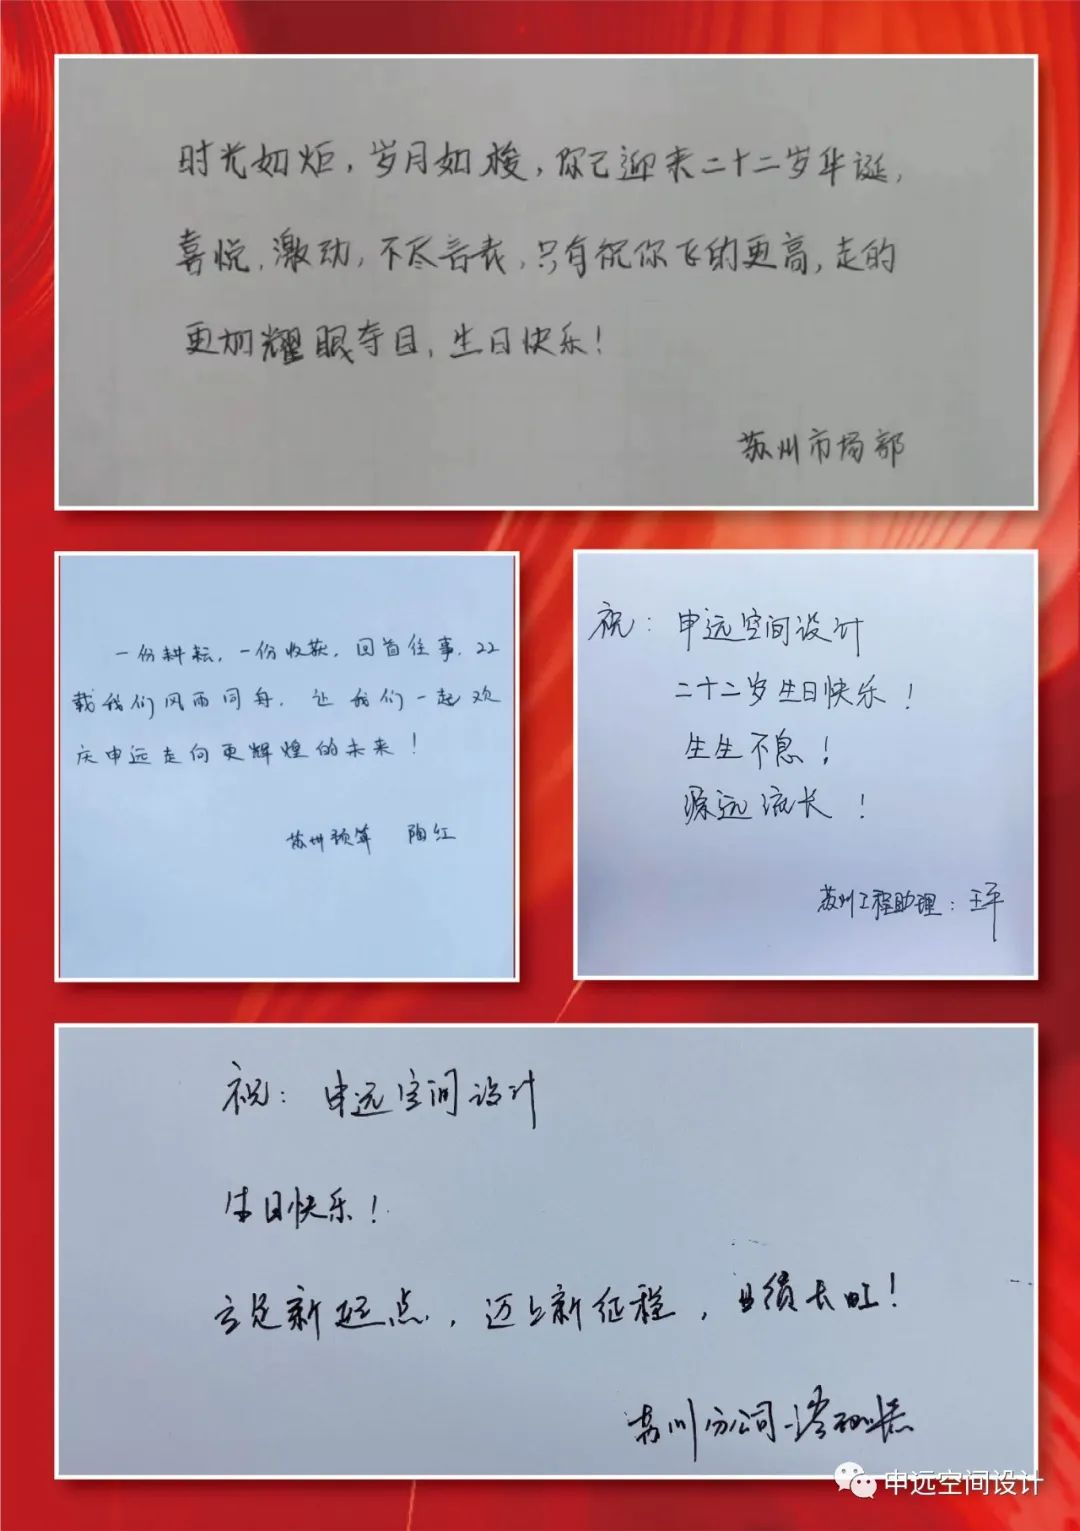 时光如炬，岁月如梭，你已迎来二十二岁华诞，
喜悦，激动，不尽言表，只有祝你飞的更高，走的
更加耀眼夺目，生日快乐！
苏州市场部
一份耕耘，一份收获，回首往事，22
载我们风雨同舟，让我们一起欢
庆申远走向更辉煌的未来！
苏州预算 陶红
祝：申远空间设计
二十二岁生日快乐！
生生不息！
源远流长！
苏州工程助理：王平
祝：申远空间设计
生日快乐！
立足新起点，迈上新征程，业绩长虹！
苏州分公司-
申远空间设计